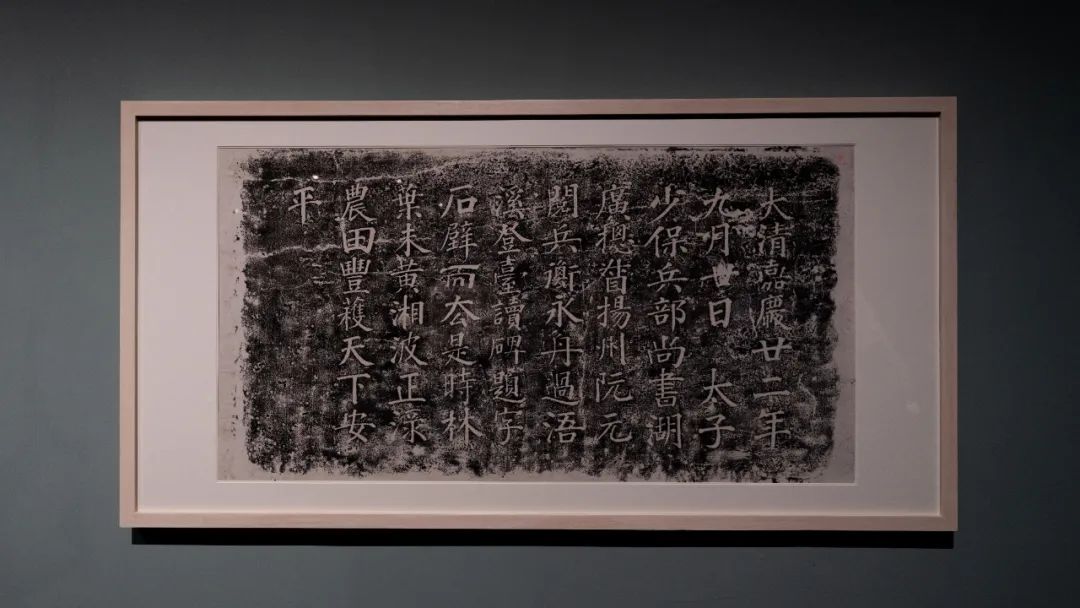 大清嘉慶廿二年
九月廿日 太子
少保兵部尚書湖
廣揔督揚州阮元
閱兵衡永舟過浯
溪登臺讀碑題字
石壁而去是時林
葉未黃湘波正
農田豐穫天下安
平